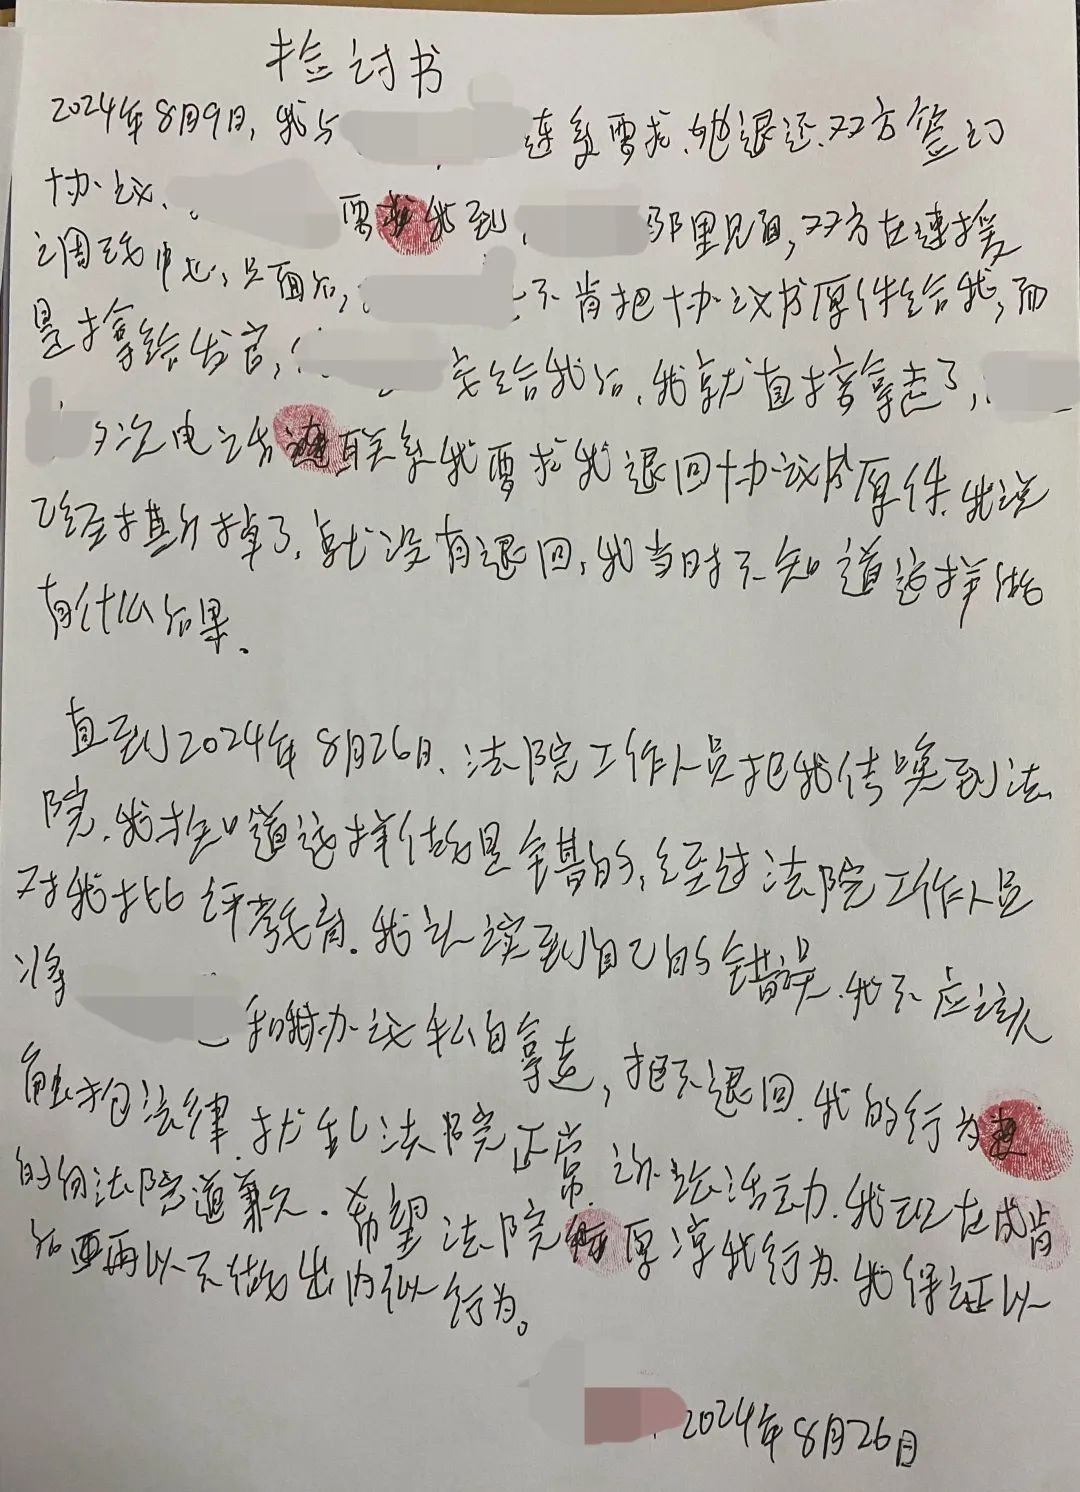 检讨书
2024年8月9日,我与 连系要求,她退还,双方签订
协议、。 要求我到, 那里见面,双方在速援
调 中心,见面后, 不肯把协议书原件给我,而
是拿给法官, 给我后,我就直接拿走了,
多次电话 联系我要求我退回协议书原件,我说
已经撕掉了,就没有退回,我当时不知道这样做
有什么后果.
直到2024年8月26日,法院工作人员把我传唤到法
院,我才知道这样做是错的,经过法院工作人员
对我批评教育.我认识到自己的错误.我不应该
将 和 协议私自拿走,拒不退回.我的行为
触犯法律.扰乱法院正常 活动.我现在
的向法院道歉.希望法院 原谅我行为.我保证以
后 再以不做出 似行为。
2024年8月26日